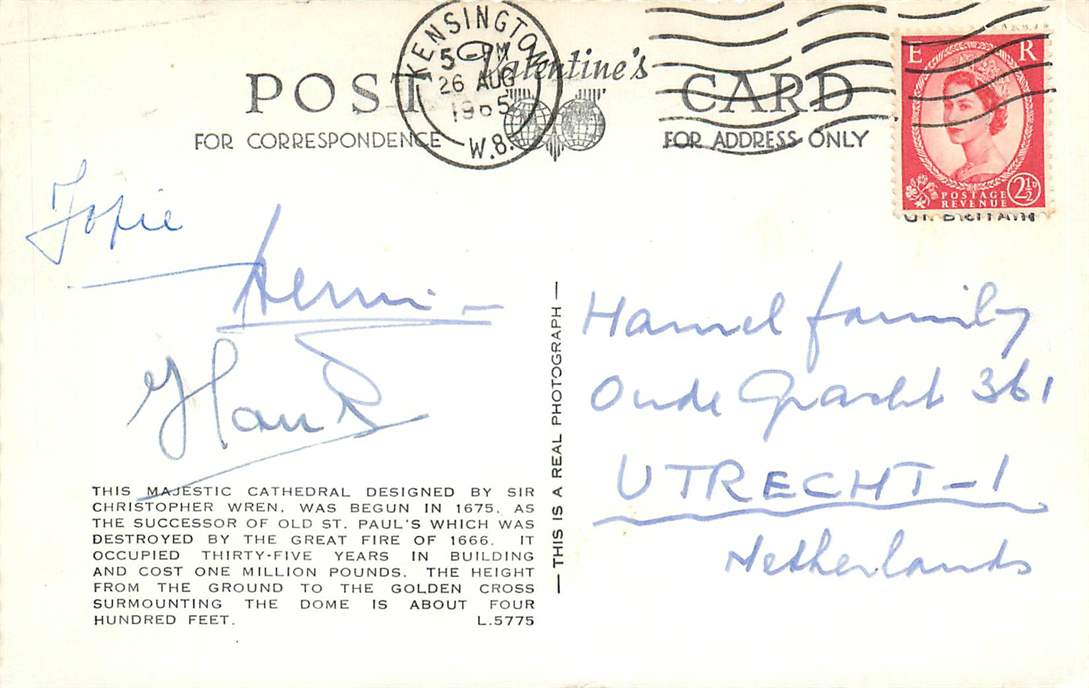 KENSINGTON
5 - PM
26 AUG
1965
W.8.
Valentine's
POST CARD
FOR CORRESPONDENCE
FOR ADDRESS ONLY
E R
POSTAGE
REVENUE
2½D
GT. BRITAIN
Jopie
Henni
Hans
THIS MAJESTIC CATHEDRAL DESIGNED BY SIR
CHRISTOPHER WREN, WAS BEGUN IN 1675, AS
THE SUCCESSOR OF OLD ST. PAUL'S WHICH WAS
DESTROYED BY THE GREAT FIRE OF 1666. IT
OCCUPIED THIRTY-FIVE YEARS IN BUILDING
AND COST ONE MILLION POUNDS. THE HEIGHT
FROM THE GROUND TO THE GOLDEN CROSS
SURMOUNTING THE DOME IS ABOUT FOUR
HUNDRED FEET. L.5775
— THIS IS A REAL PHOTOGRAPH —
Hamel family
Oude gracht 361
UTRECHT-1
Netherlands